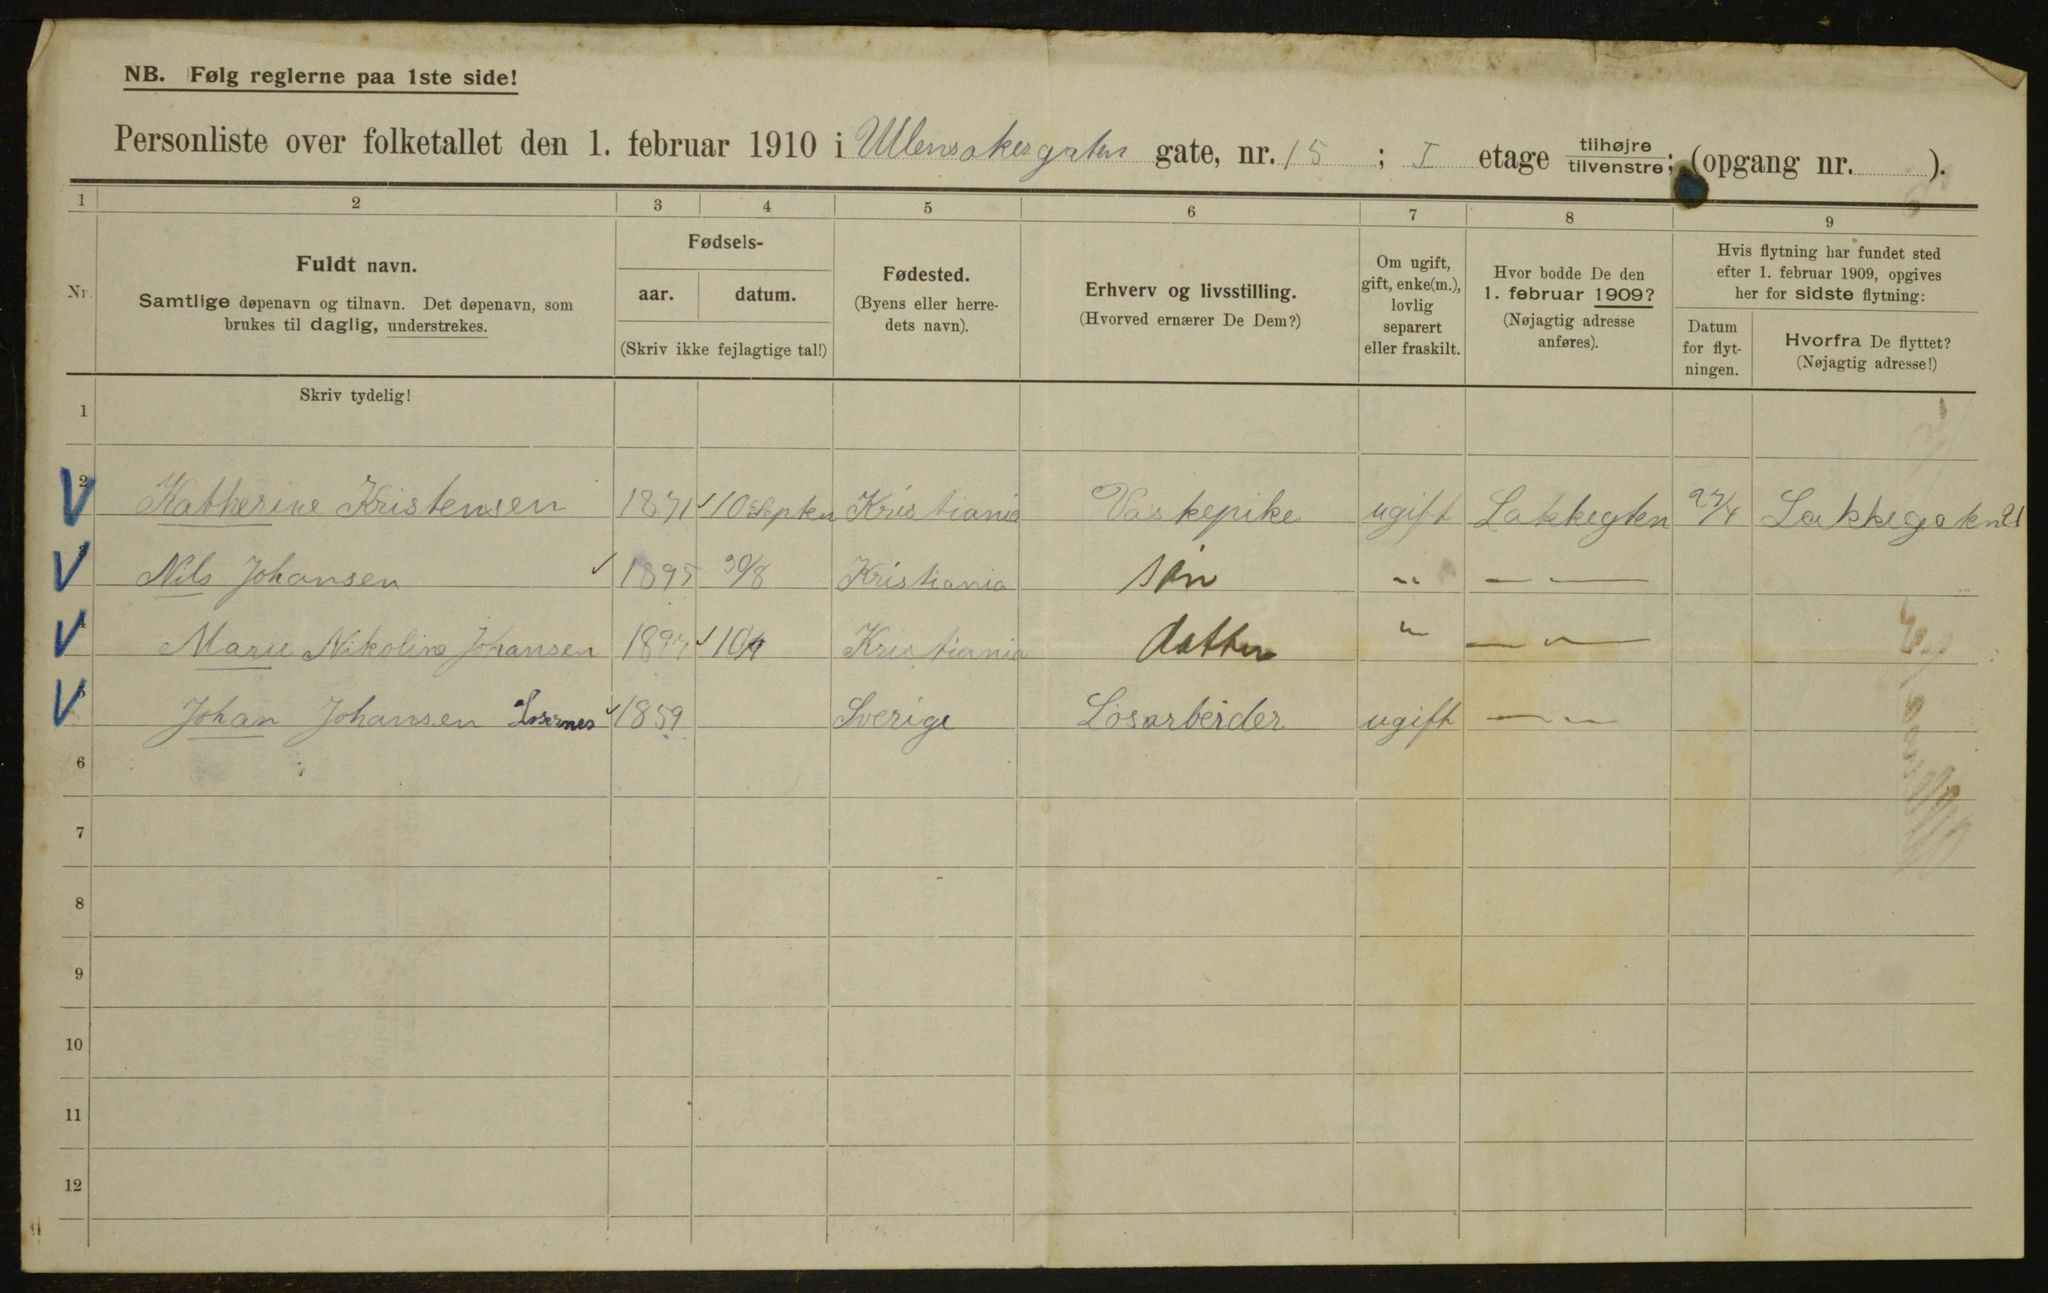 NB. Følg reglerne paa 1ste side!
Personliste over folketallet den 1. februar 1910 i Ullensakergaten gate, nr. 15 ; I etage tilhøjre tilvenstre; (opgang nr. ).
1 2 3 4 5 6 7 8 9
Nr.
Fuldt navn.
Samtlige døpenavn og tilnavn. Det døpenavn, som
brukes til daglig, understrekes.
Fødsels-
aar. datum.
(Skriv ikke fejlagtige tal!)
Fødested.
(Byens eller herre-
dets navn).
Erhverv og livsstilling.
(Hvorved ernærer De Dem?)
Om ugift,
gift, enke(m.),
lovlig
separert
eller fraskilt.
Hvor bodde De den
1. februar 1909?
(Nøjagtig adresse
anføres).
Hvis flytning har fundet sted
efter 1. februar 1909, opgives
her for sidste flytning:
Datum
for flyt-
ningen.
Hvorfra De flyttet?
(Nøjagtig adresse!)
Skriv tydelig!
1
2 Katherine Kristensen 1871 10 Septen Kristiania Vaskepike ugift Lakkegten 27/4 Lakkegaten 21
3 Nils Johansen 1895 30/8 Kristiania søn " — " —
4 Marie Nikoline Johansen 1897 Kristiania datter " — " —
5 Johan Johansen 1859 Sverige Løsarbeider ugift — " —
6
7
8
9
10
11
12